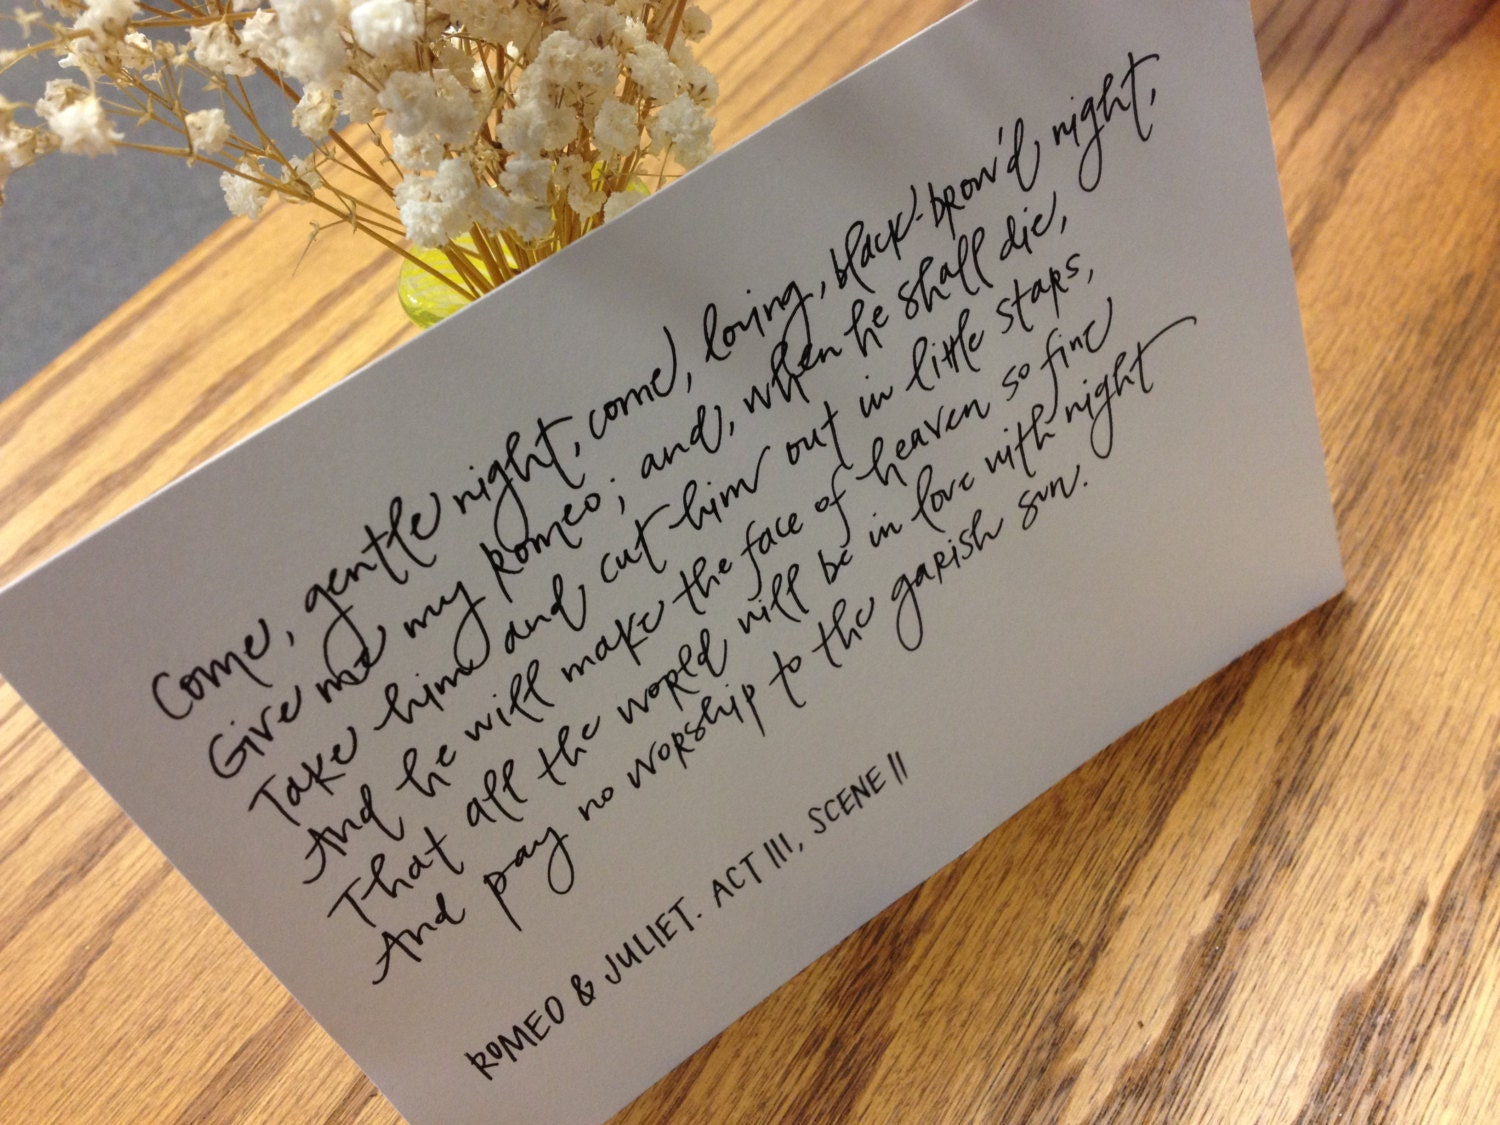 Come, gentle night, come, loving, black-brow'd night,
Give me my Romeo; and, when he shall die,
Take him and cut him out in little stars,
And he will make the face of heaven so fine
That all the world will be in love with night
And pay no worship to the garish sun.
ROMEO & JULIET. ACT IIII, SCENE II